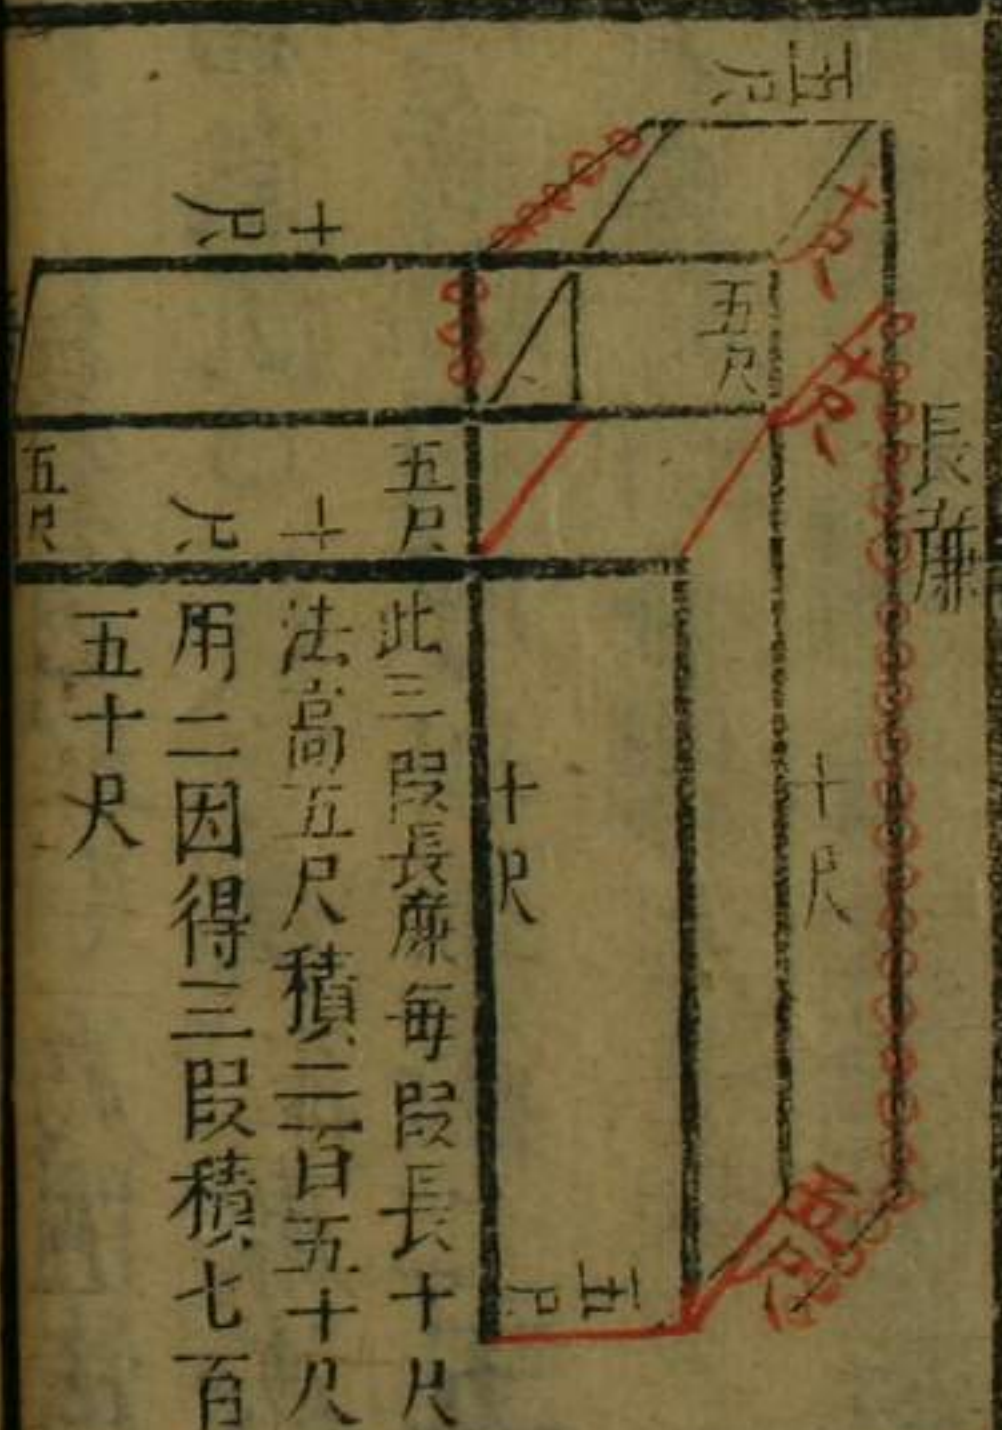 長廉
五尺
十尺
十尺
五尺
十尺
十尺
五尺
五尺
十尺
五尺
十尺
五尺
此三段長廉每段長十尺
法高五尺積二百五十尺
用二因得三段積七百
五十尺